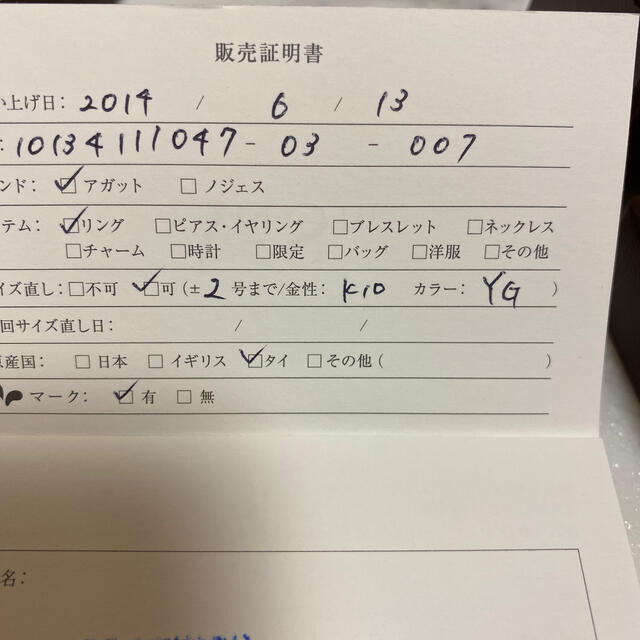 販売証明書
い上げ日: 2014 / 6 / 13
: 10134111047 - 03 - 007
ンド: ☑ アガット □ ノジェス
テム: ☑リング □ピアス・イヤリング □ブレスレット □ネックレス
□チャーム □時計 □限定 □バッグ □洋服 □その他
イズ直し: □不可 ☑可 (±2 号まで/金性: K10 カラー: YG )
回サイズ直し日: / /
原産国: □ 日本 □ イギリス ☑タイ □ その他 ( )
マーク: ☑ 有 □ 無
名: